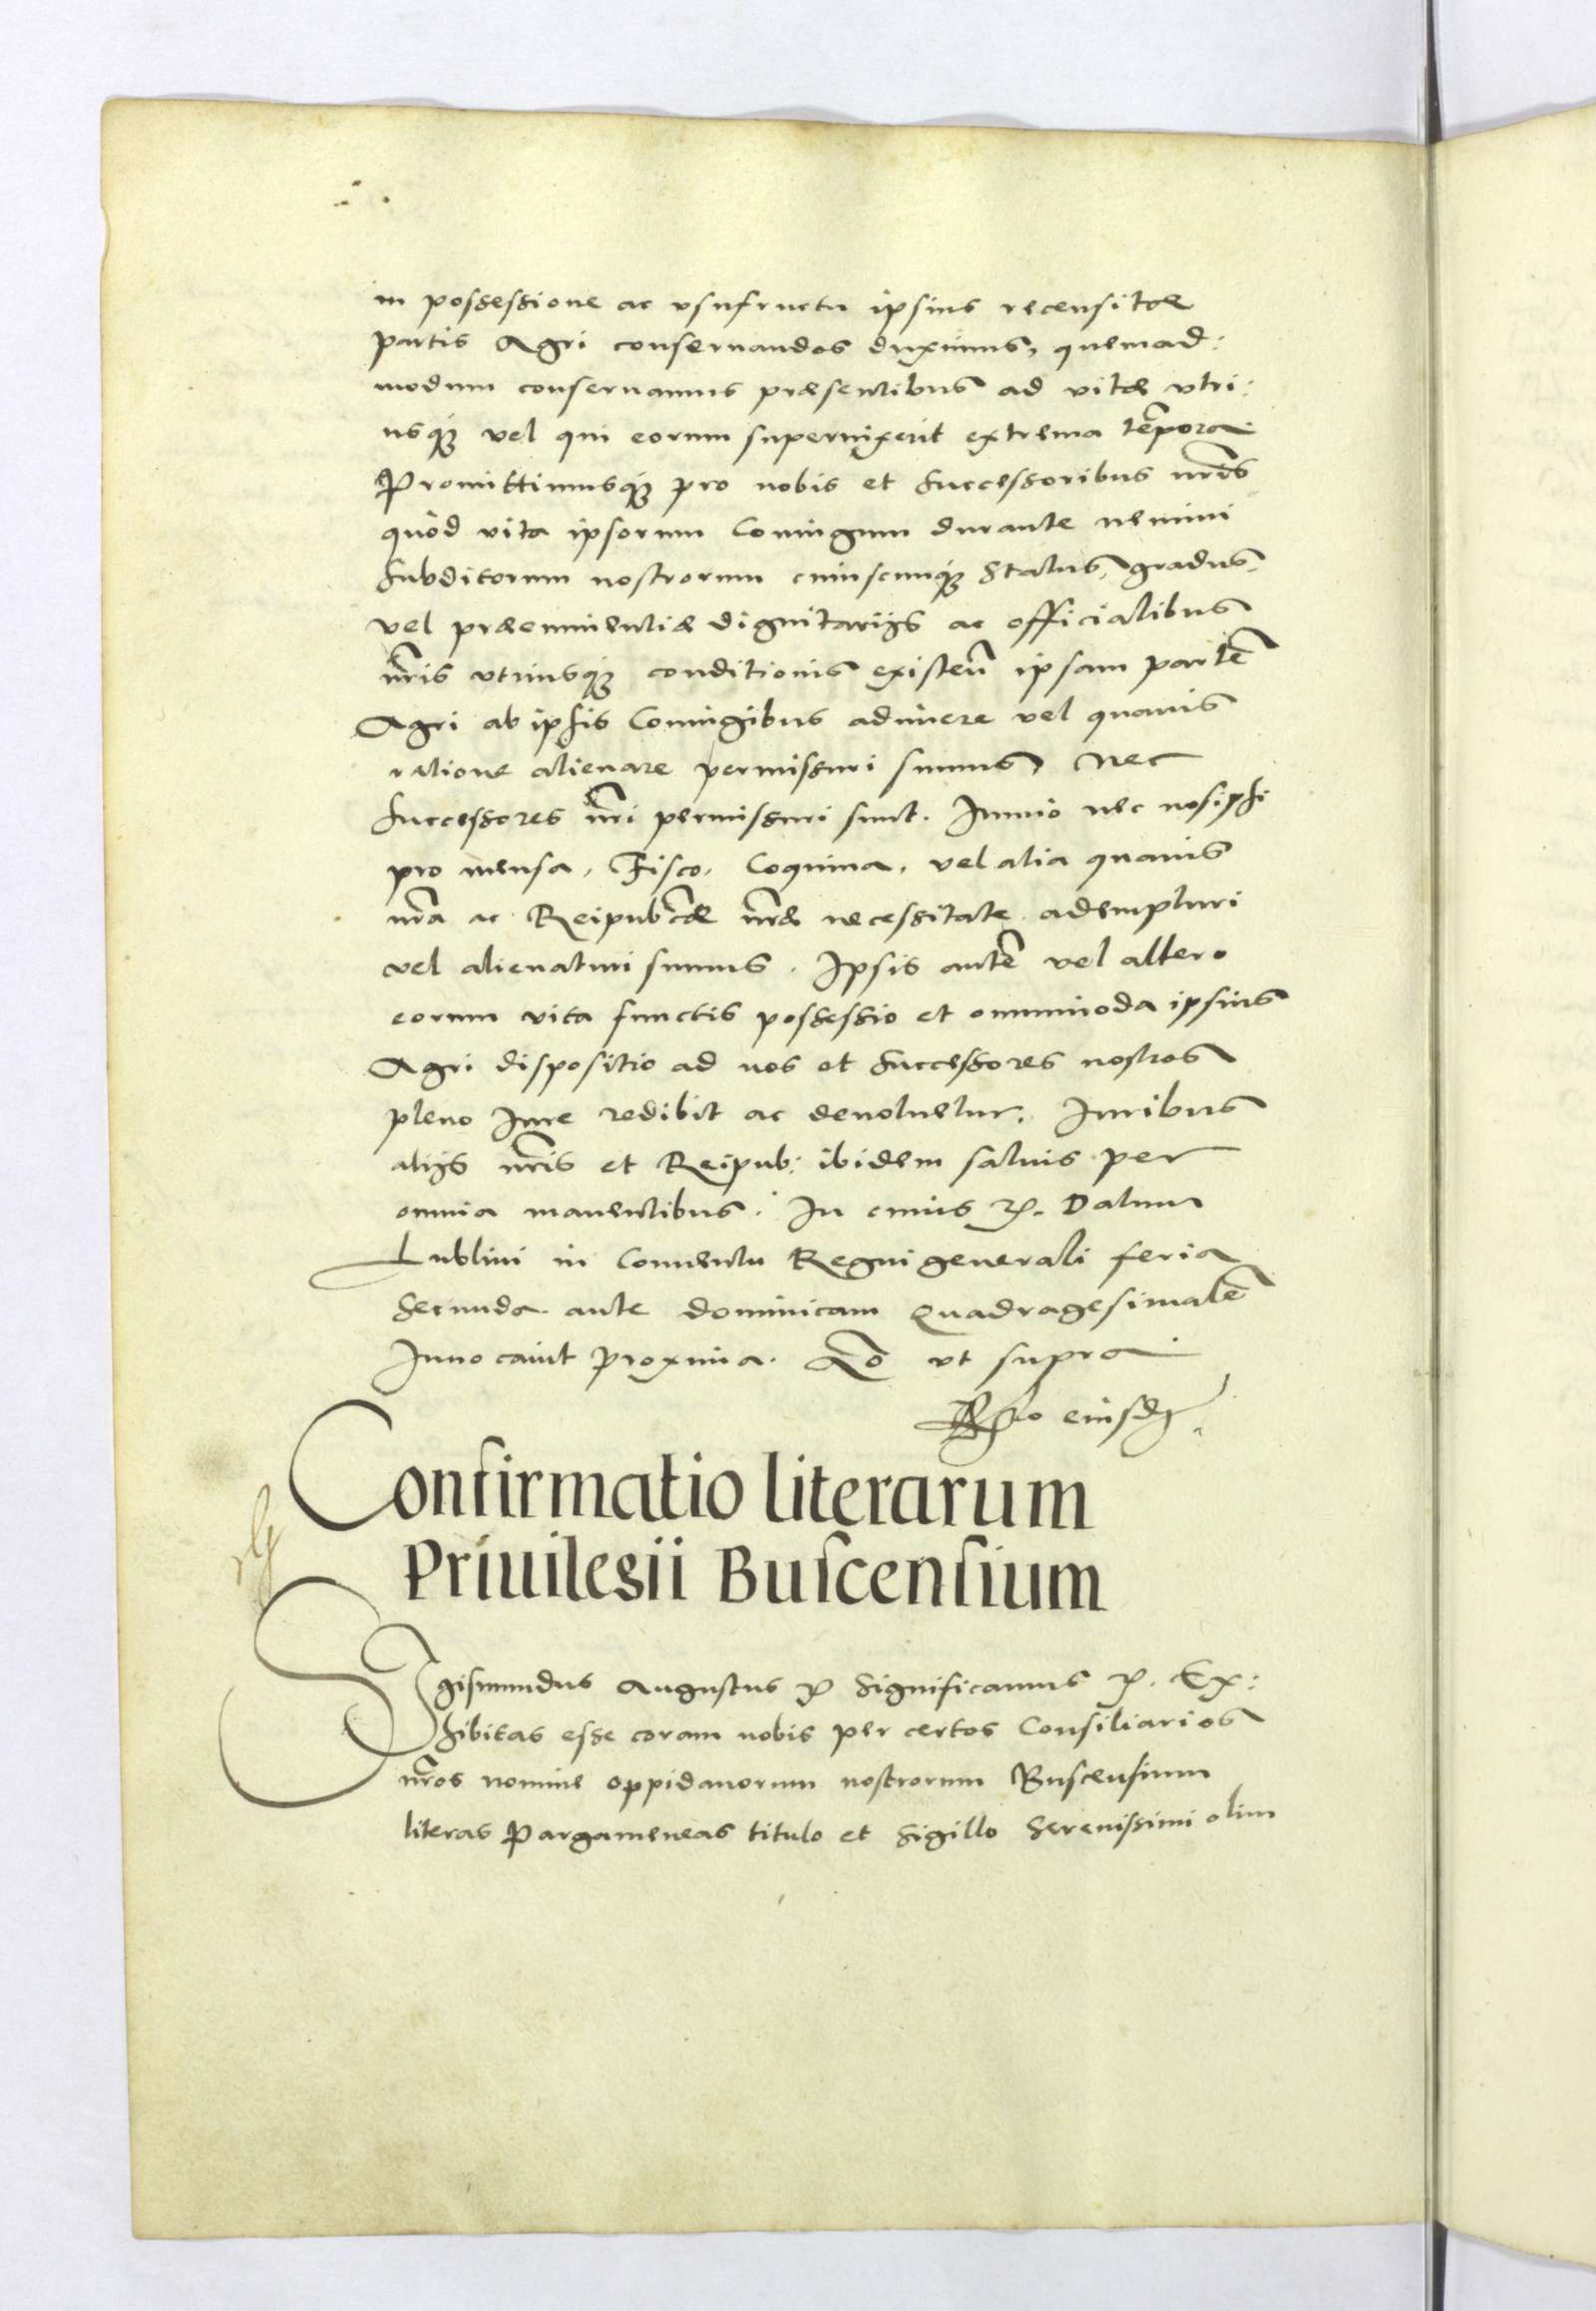 in possessione ac vsufructu ipsius recensitæ
partis Agri conseruandos duximus, quemad:
modum conseruamus præsentibus ad vitæ vtri:
usq́ꝫ vel qui eorum superuixerit extrema tēpora
Promittimusq́ꝫ pro nobis et Successoribus nr̃is
quòd vita ipsorum Coniugum durante nemini
Subditorum nostrorum cuiuscunq́ꝫ Status, gradus,
vel præeminentiæ dignitarijs ac officialibus
nr̃is vtriusq́ꝫ conditionis existeñ ipsam partē
Agri ab ipsis Coniugibus adimere vel quauis
ratione alienare permissuri sumus, Nec
Successores nr̃i permissuri sunt. Immo nec nosipsi
pro mensa, Fisco, Coquina, vel alia quauis
nr̃a ac Reipub̃cæ nr̃æ necessitate adempturi
vel alienaturi sumus. Ipsis autē vel altero
eorum vita functis possessio et omnimoda ipsius
Agri dispositio ad nos et Successores nostros
pleno Iure redibit ac deuoluetur. Iuribus
alijs nr̃is et Reipub: ibidem saluis per
omnia manentibus. In cuius ꝛc. Datum
Lublini in Conuentu Regni generali feria
Secunda ante dominicam Quadragesimalē
Inuocauit proxima. Ao ut supra
Rela͠o eiusdꝫ.
Confirmatio literarum
Priuilegii Buscensium
Sigismundus Augustus ꝛc Significamus ꝛc. Ex:
hibitas esse coram nobis per certos Consiliarios
nr̃os nomine oppidanorum nostrorum Buscensium
literas Pargameneas titulo et Sigillo Serenissimi olim